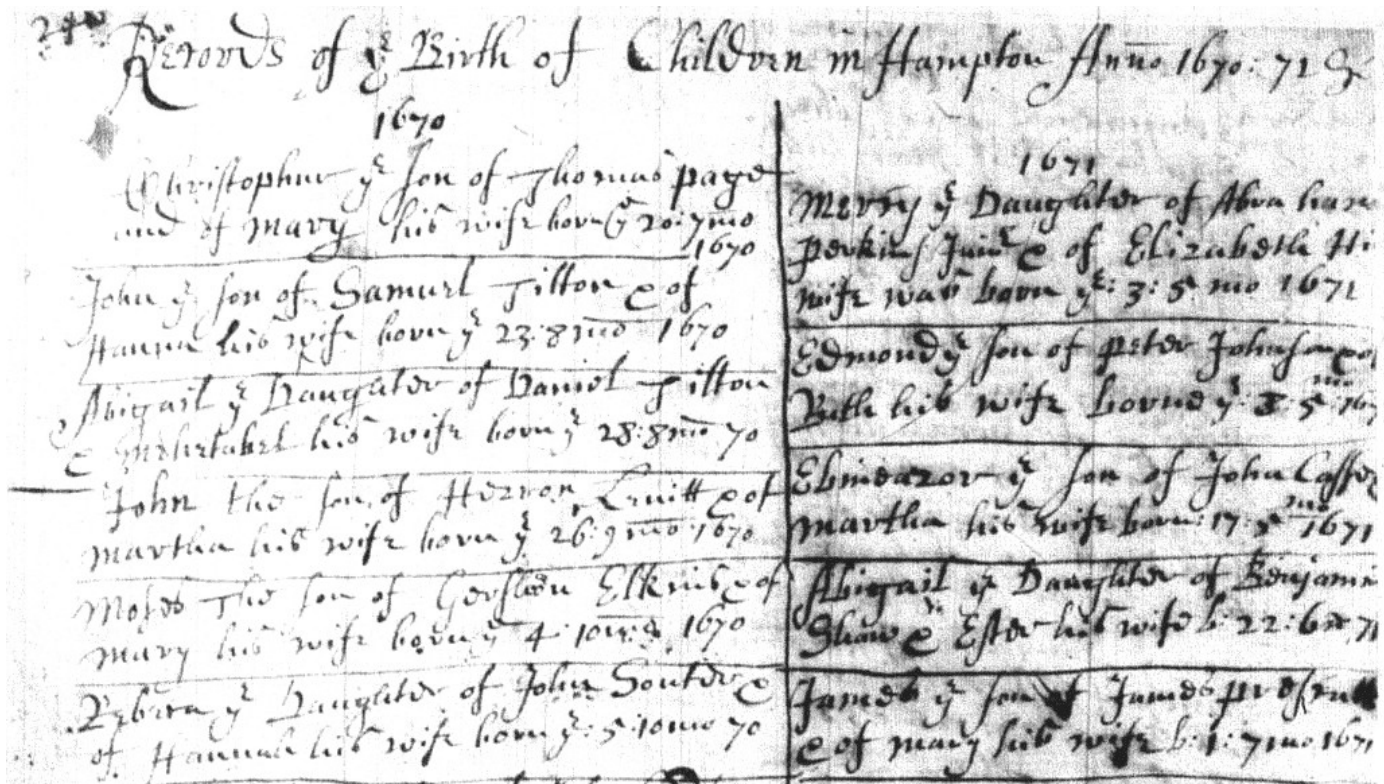 Records of yͤ Birth of Children in Hampton Anno 1670: 71 &
1670
Christopher yͤ son of Thomas page
and of mary his wife born yͤ 20: 7 mo
1670
John yͤ son of Samuel Tilton & of
Hanna his wife born yͤ 23: 8 mo 1670
Abigail yͤ Daughter of Daniel Tilton
& mehetabel his wife born yͤ 28: 8 mo 70
John the son of Hezron Leuitt & of
martha his wife born yͤ 26: 9 mo: 1670
Moses The son of Gershom Elkins & of
mary his wife born yͤ 4: 10 1670
Rebeca yͤ Daughter of John Souter &
of Hannah his wife born yͤ: 5: 10 mo 70
1671
Mercy yͤ Daughter of Abraham
Perkins Junʳ & of Elizabeth Hi
wife was born yͤ: 3: 5 mo 1671
Edmond yͤ son of Peter Johnson & o
Ruth his wife borne yͤ: 5: mo 167
Ebinearor yͤ son of John Casse
martha his wife born: 17: 5 mo 1671
Abigail yͤ Daughter of Benjamin
Shaw & Ester his wife b: 22: 6 mo 71
James yͤ son of James
& of mary his wife b: 1: 7 mo 1671